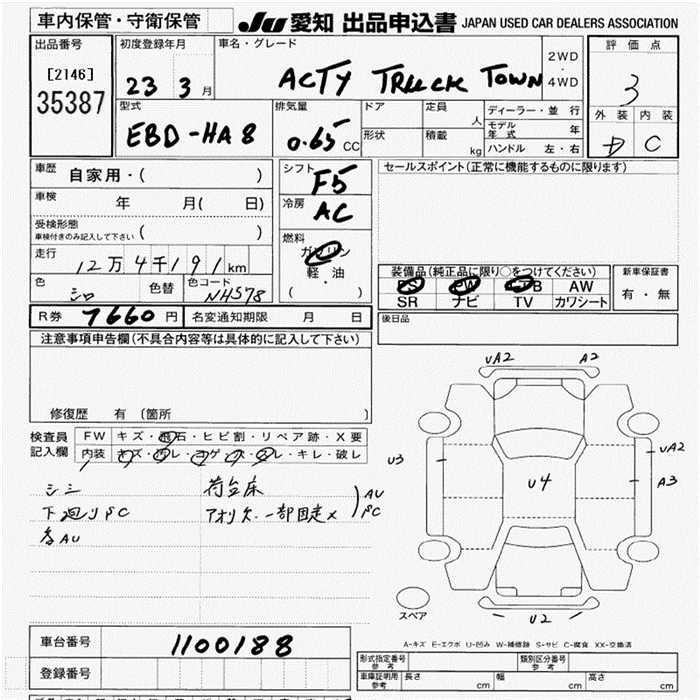 車内保管・守衛保管
JU 愛知 出品申込書 JAPAN USED CAR DEALERS ASSOCIATION
出品番号
[2146]
35387
初度登録年月
23 3月
車名・グレード
ACTY TRUCK TOWN
2WD
・
4WD
評価点
3
外装 内装
D C
型式
EBD-HA8
排気量
0.65 CC
ドア
定員
人
形状
積載
kg
ディーラー・並行
モデル年式 年
ハンドル 左・右
車歴
自家用・( )
車検
年 月( 日)
受検形態
車検付きのみ記入して下さい ( )
走行
12万4千191km
色
シロ
色替
色コード
NH578
シフト
F5
冷房
AC
燃料
ガソリン
軽・油
( )
セールスポイント(正常に機能するものに限ります)
装備品(純正品に限り○をつけてください)
PS PW AB AW
SR ナビ TV カワシート
新車保証書
有・無
R券 7660円
名変通知期限 月 日
後日品
注意事項申告欄(不具合内容等は具体的に記入して下さい)
修復歴 有 (箇所 )
検査員記入欄
FW キズ・飛石・ヒビ割・リペア跡・X要
内装 キズ・汚レ・コゲ・穴・スレ・キレ・破レ
シミ
下廻りPC
各AU
荷台床
アオリ欠 一部固定×
AU
PC
UA2 A2
U3
UA2
A3
U4
U2
スペア
A-キズ E-エクボ U-凹み W-補修跡 S-サビ C-腐食 XX-交換済
車台番号 1100188
登録番号
形式指定番号
参考
類別区分番号
参考
車庫証明用
参考
長さ cm 幅 cm 高さ cm